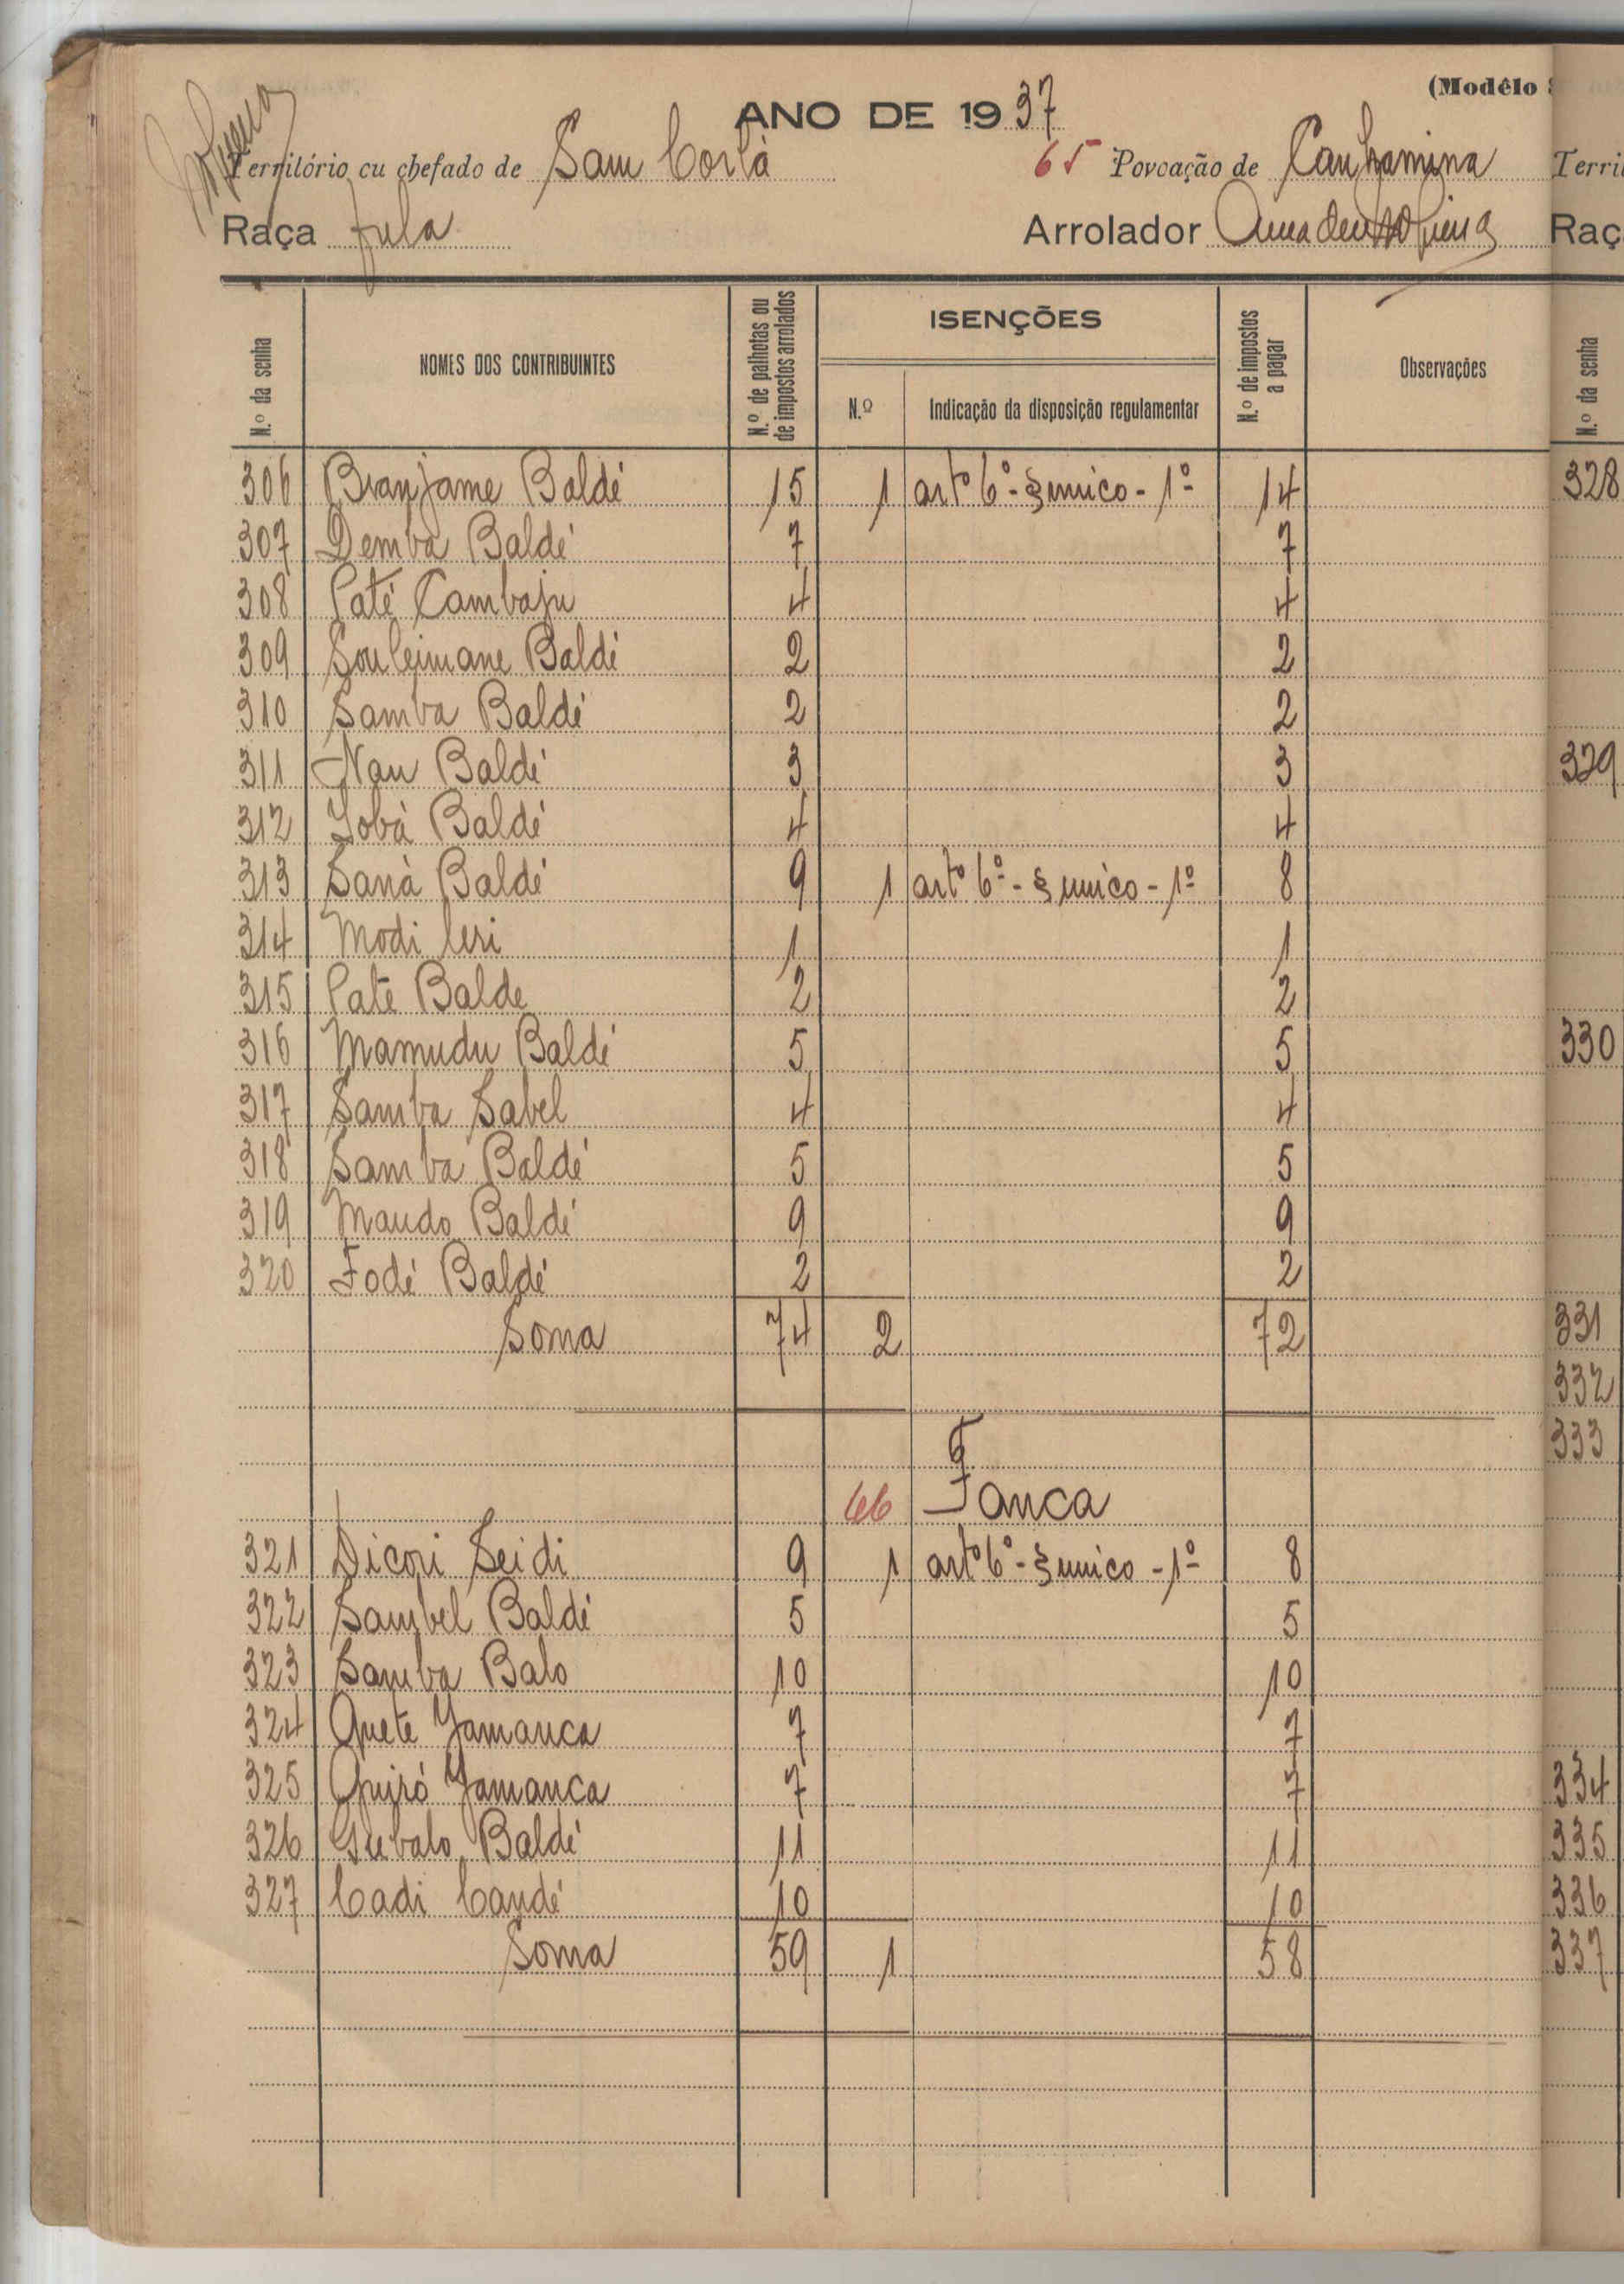 (Modêlo
ANO DE 1937
Território ou chefado de Sam Corlà 65 Povoação de Canhamina
Raça fula Arrolador Amadeu
N.º da senha NOMES DOS CONTRIBUINTES N.º de palhotas ou de impostos arrolados ISENÇÕES N.º Indicação da disposição regulamentar N.º de impostos a pagar Observações
306 Branjame Baldé 15 1 artº 6º - § unico - 1º 14
307 Demba Baldé 7 7
308 Paté Cambaju 4 4
309 Souleimane Baldé 2 2
310 Samba Baldé 2 2
311 Nau Baldé 3 3
312 Iobà Baldé 4 4
313 Sanà Baldé 9 1 artº 6º - § unico - 1º 8
314 Modi Ieri 1 1
315 Paté Balde 2 2
316 Mamudu Baldé 5 5
317 Samba Sabel 4 4
318 Samba Baldé 5 5
319 Maudo Baldé 9 9
320 Fodé Baldé 2 2
Soma 74 2 72
66 Fanca
321 Dicori Seidi 9 1 artº 6º - § unico - 1º 8
322 Sambel Baldé 5 5
323 Samba Balo 10 10
324 Quete Jamanca 7 7
325 Quiró Jamanca 7 7
326 Gubalo Baldé 11 11
327 Cadi Candé 10 10
Soma 59 1 58
Terri
Raç
N.º da senha
328
329
330
331
332
333
334
335
336
337